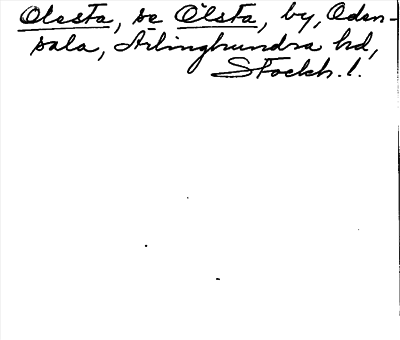 Olesta, se Ölsta, by, Oden-
sala, Ärlinghundra hd,
Stockh. l.